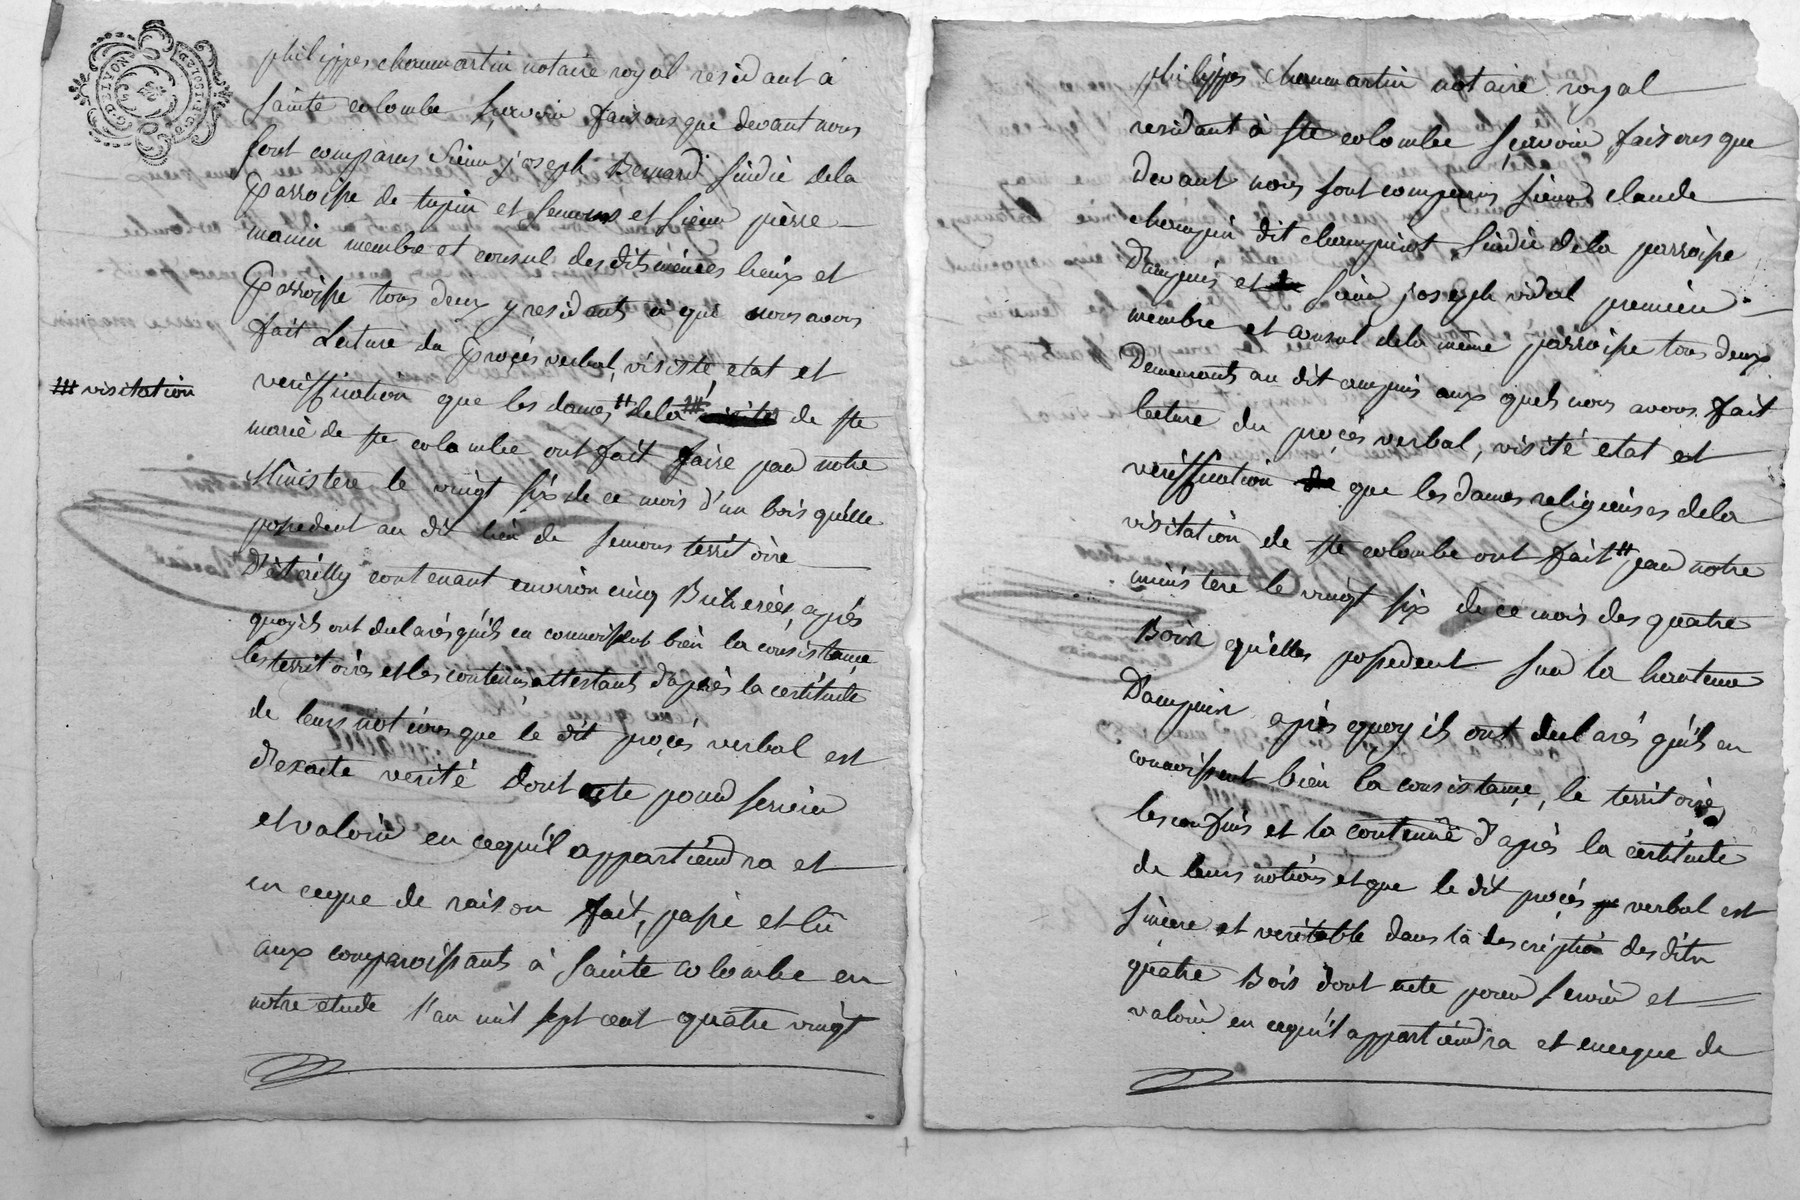 philippes chaumartin notaire royal residant à
Sainte colombe Sçavoir faisons que devant nous
sont comparus Sieur joseph Bernard Sindic dela
Parroisse de tupin et Semons et Sieur pierre
manin membre et consul des dits mêmes lieux et
Parroisse tous deux y residants à qui nous avons
fait Lecture du Procés verbal, visitte, etat et
veriffication que les dames dela de ste
## visitation
marie de ste colombe ont fait faire par notre
Ministere le vingt six de ce mois d'un bois qu'elle
possedent au dit lieu de Semons territoire
contenant environ cinq Bicherées, après
quoy ils ont declarés qu'ils en connoissent bien la consistance
les territoires et les contenus attestants d'après la certitude
de leurs notions que le dit procés verbal est
d'exacte verité dont acte pour servir
et valoir en cequ'il appartiendra et
en ceque de raison fait, passé et lû
aux comparoissants à Sainte colombe en
notre etude l'an mil sept cent quatre vingt
philippes chaumartin notaire royal
residant à ste colombe sçavoir faisons que
devant nous sont comparus sieurs claude
champin dit champinot Sindic dela parroisse
D'ampuis et sieur joseph vidal premier
membre et consul dela même parroisse tous deux
Demeurants au dit ampuis aux quels nous avons fait
lecture du procés verbal, visité etat et
veriffication que les dames religieuses dela
visitation de ste colombe ont fait par notre
ministere le vingt six de ce mois des quatre
Bois qu'elles possedent sur la hauteur
D'ampuis après quoy ils ont declarés qu'ils en
connoissent bien la consistance, le territoire
les confins et la contenüe d'après la certitude
de leurs notions et que le dit procés verbal est
sincere et veritable dans la description des dits
quatre Bois dont acte pour servir et
valoir en cequ'il appartiendra et enceque de